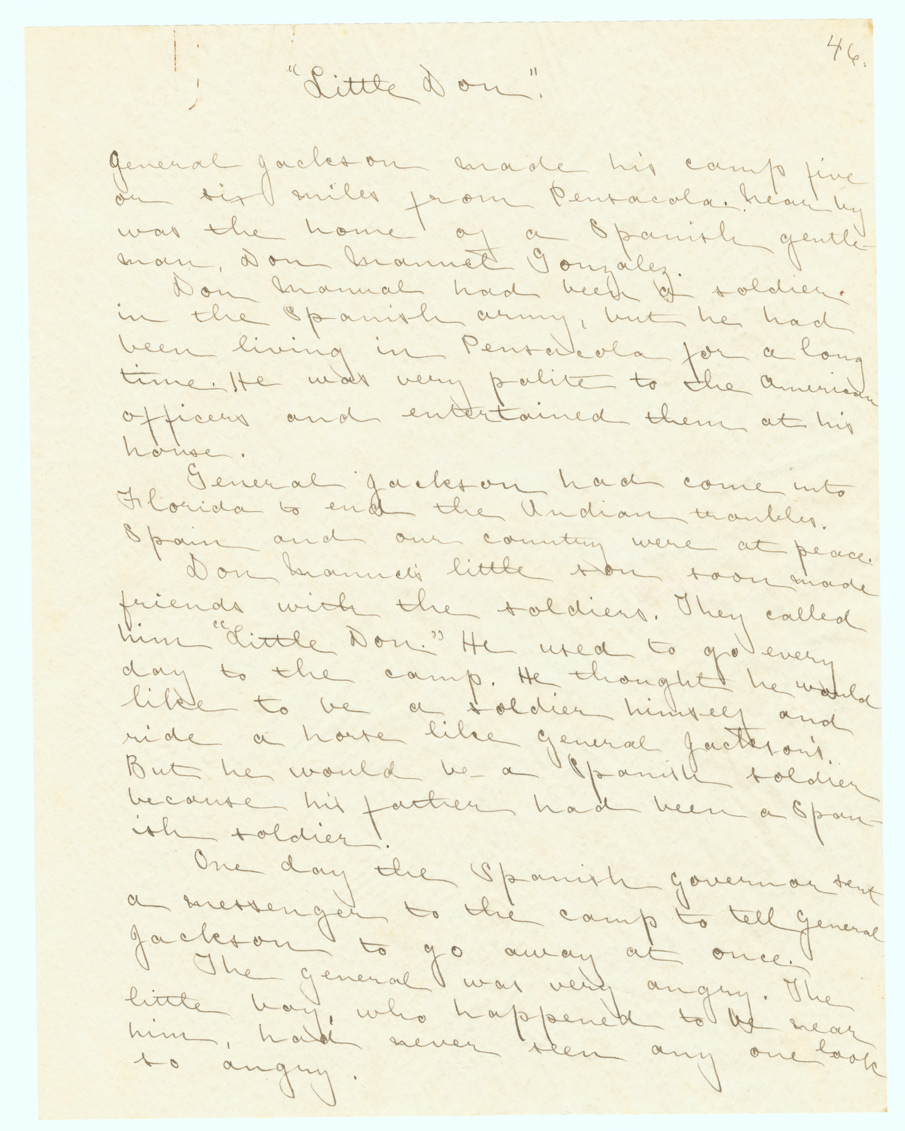 46.
"Little Don".
General Jackson made his camp five
or six miles from Pensacola. Near by
was the home of a Spanish gentle-
man, Don Manuel Gonzalez.
Don Manual had been a soldier
in the Spanish army, but he had
been living in Pensacola for a long
time. He was very polite to the American
officers and entertained them at his
house.
General Jackson had come into
Florida to end the Indian troubles.
Spain and our country were at peace.
Don Manuel's little son soon made
friends with the soldiers. They called
him "Little Don." He used to go every
day to the camp. He thought he would
like to be a soldier himself and
ride a horse like General Jackson's.
But he would be a Spanish soldier
because his father had been a Span-
ish soldier.
One day the Spanish governor sent
a messenger to the camp to tell General
Jackson to go away at once.
The general was very angry. The
little boy, who happened to be near
him, had never seen any one look
so angry.